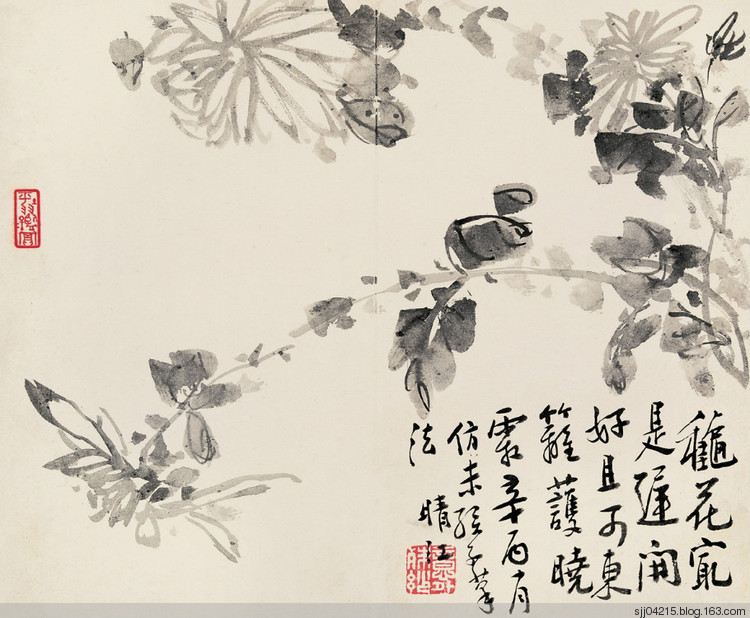 龝花冣
是遲開
好且可東
籬護曉
霜辛酉月
仿筆
法 晴江
sjj04215.blog.163.com